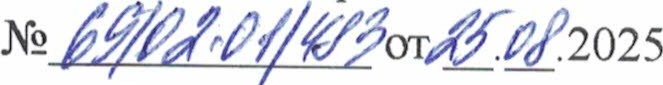 № 69/02-01/483 от 25.08.2025